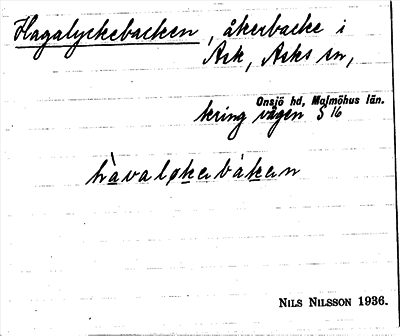 Hagalyckebacken, åkerbacke i
Ask, Asks sn,
Onsjö hd, Malmöhus län.
kring vägen S 16
NILS NILSSON 1936.